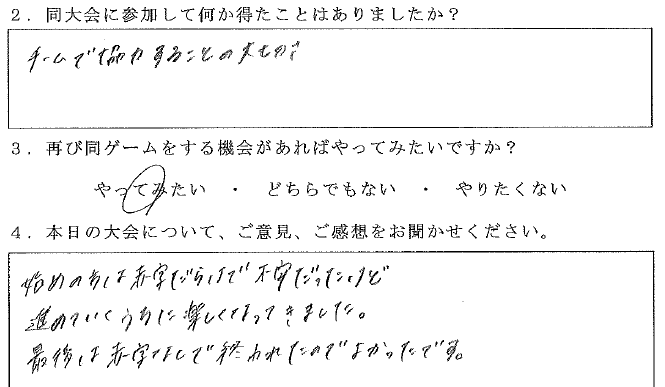 2．同大会に参加して何か得たことはありましたか？
チームで協力することの大切さ
3．再び同ゲームをする機会があればやってみたいですか？
やってみたい ・ どちらでもない ・ やりたくない
4．本日の大会について、ご意見、ご感想をお聞かせください。
始めの方は赤字だらけで だったけど
進めていくうちに楽しくなってきました。
最後は赤字なしで終われたのでよかったです。